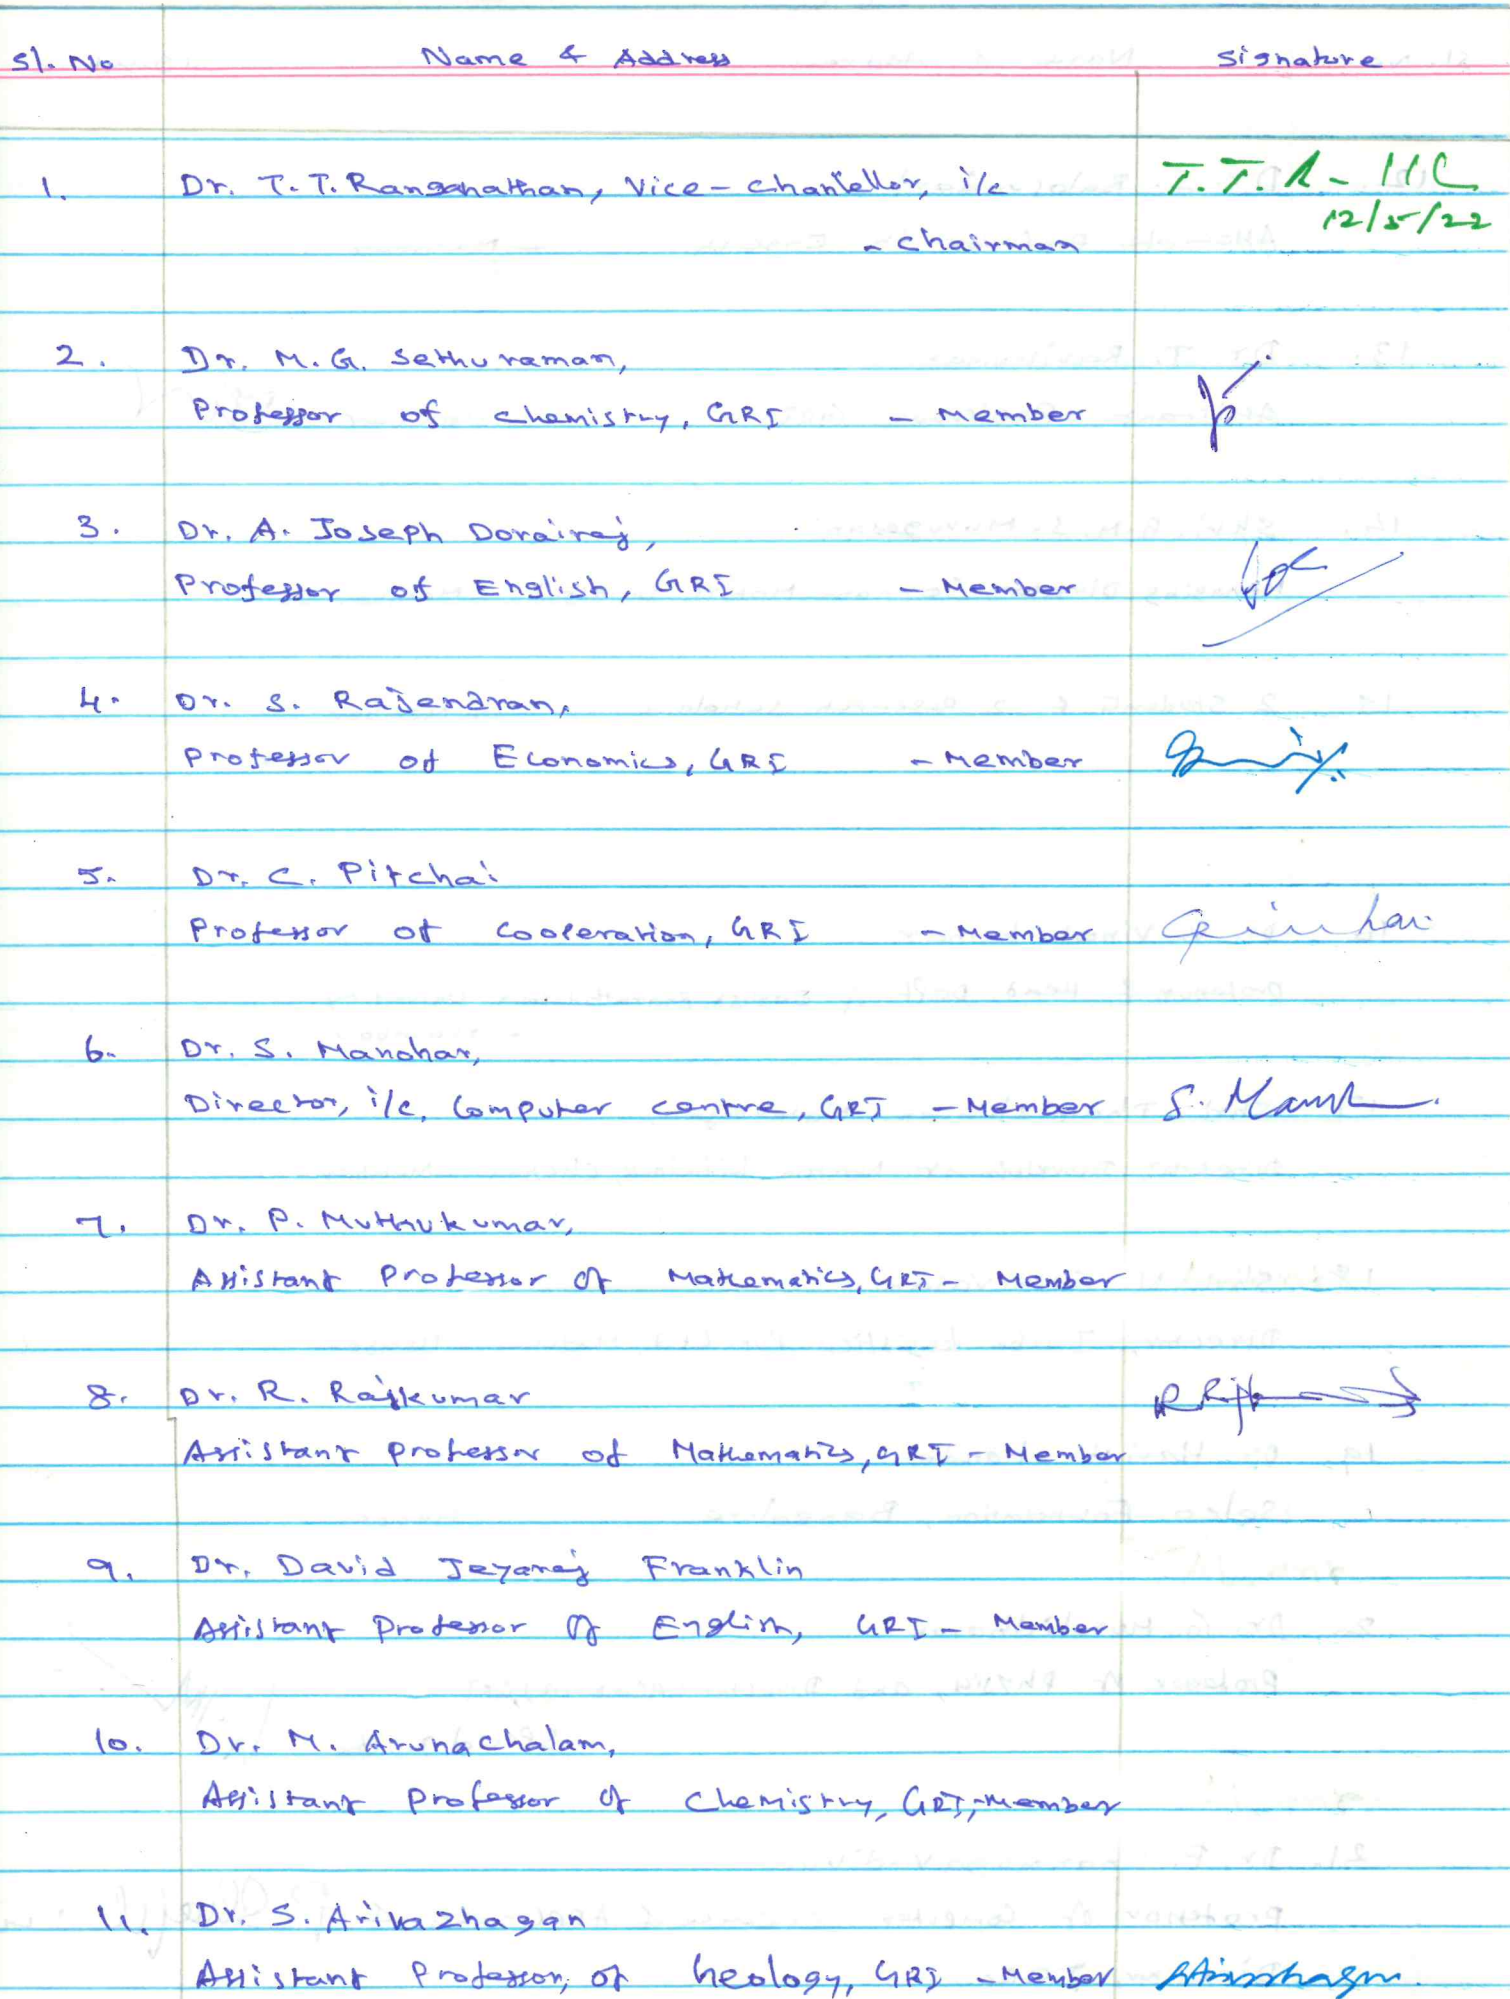 Sl. No Name & Address Signature
1. Dr. T. T. Ranganathan, Vice-Chancellor, i/c T. T. R
- Chairman 12/5/22
2. Dr. M. G. Sethuraman,
Professor of Chemistry, GRI - Member
3. Dr. A. Joseph Dorairaj,
Professor of English, GRI - Member
4. Dr. S. Rajendran,
Professor of Economics, GRI - Member
5. Dr. C. Pitchai
Professor of Cooperation, GRI - Member
6. Dr. S. Manohar,
Director, i/c, Computer Centre, GRI - Member S.
7. Dr. P. Muthukumar,
Assistant Professor of Mathematics, GRI - Member
8. Dr. R. Rajkumar
Assistant Professor of Mathematics, GRI - Member
9. Dr. David Jeyaraj Franklin
Assistant Professor of English, GRI - Member
10. Dr. M. Arunachalam,
Assistant Professor of Chemistry, GRI, - Member
11. Dr. S. Arivazhagan
Assistant Professor, of Geology, GRI - Member